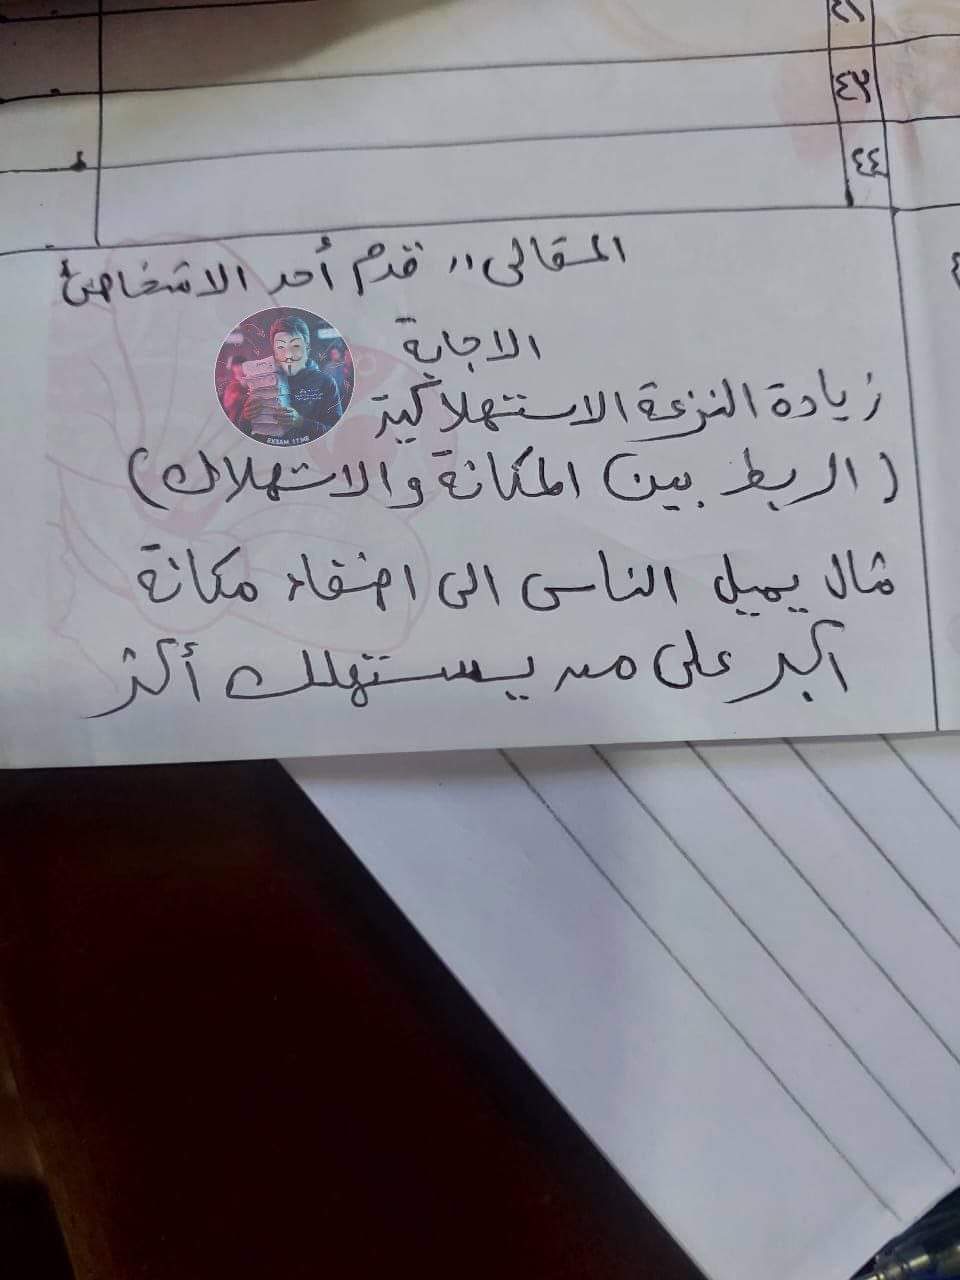 ٤٢
٤٣
٤٤
المقالى ،، قدم أحد الاشخاص
الاجابة
زيادة النزعة الاستهلاكية
EXSAM_17MB
(الربط بين المكانة والاستهلاك)
مثال يميل الناس الى اضفاء مكانة
اكبر على من يستهلك أكثر